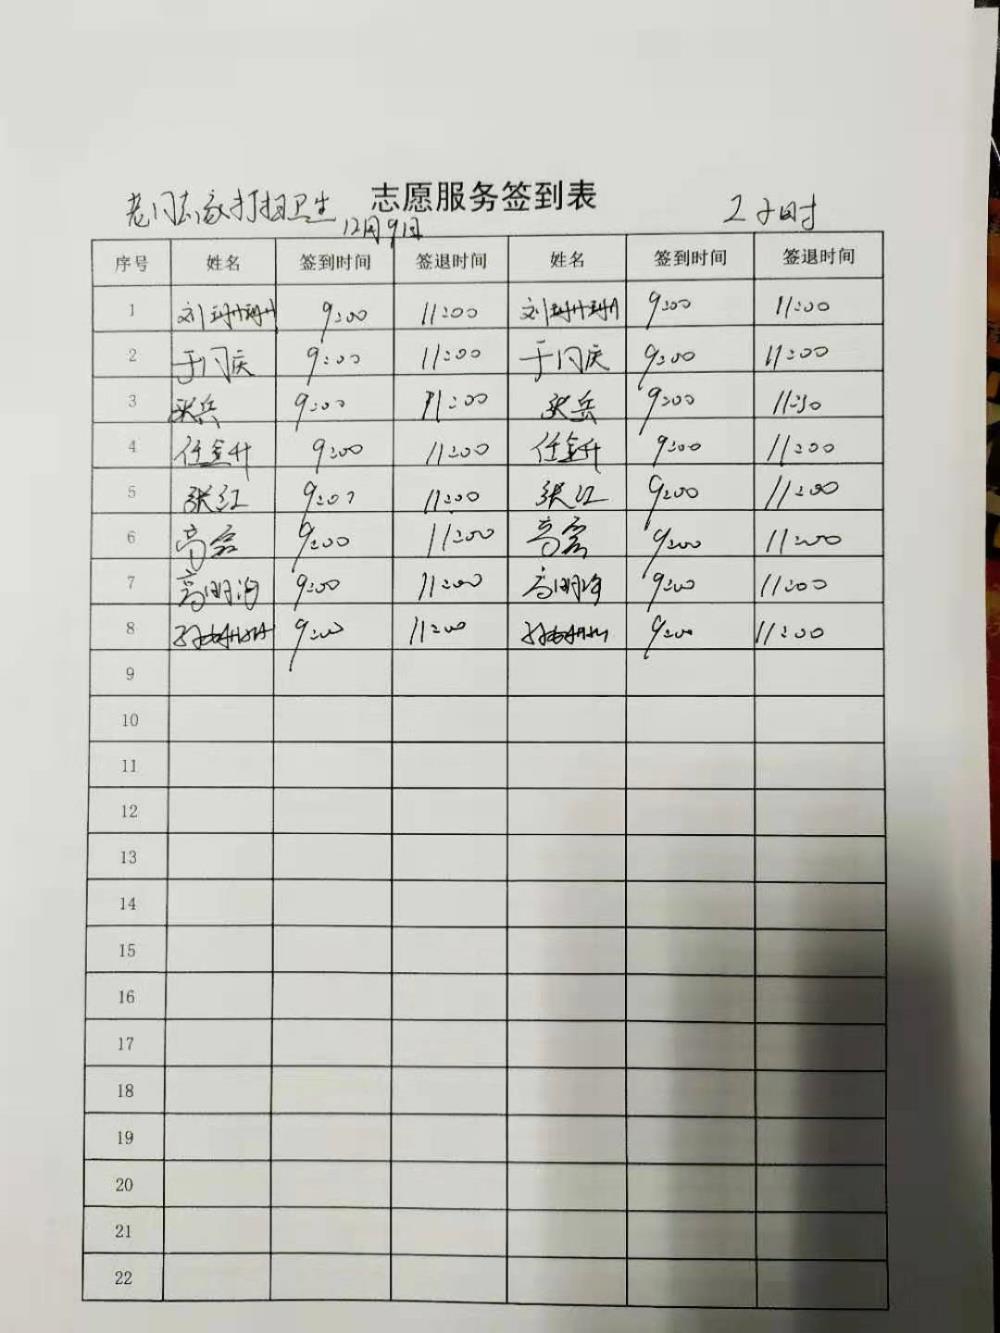 老同志家打扫卫生 志愿服务签到表 2小时
12月9日
序号 姓名 签到时间 签退时间 姓名 签到时间 签退时间
1 刘珊珊 9:00 11:00 刘珊珊 9:00 11:00
2 于闪庆 9:00 11:00 于闪庆 9:00 11:00
3 9:00 11:00 9:00
4 任金升 9:00 11:00 任金升 9:00 11:00
5 张红 9:00 11:00 张红 9:00 11:00
6 9:00 11:00 9:00 11:00
7 9:00 11:00 9:00 11:00
8 9:00 11:00 9:00 11:00
9
10
11
12
13
14
15
16
17
18
19
20
21
22